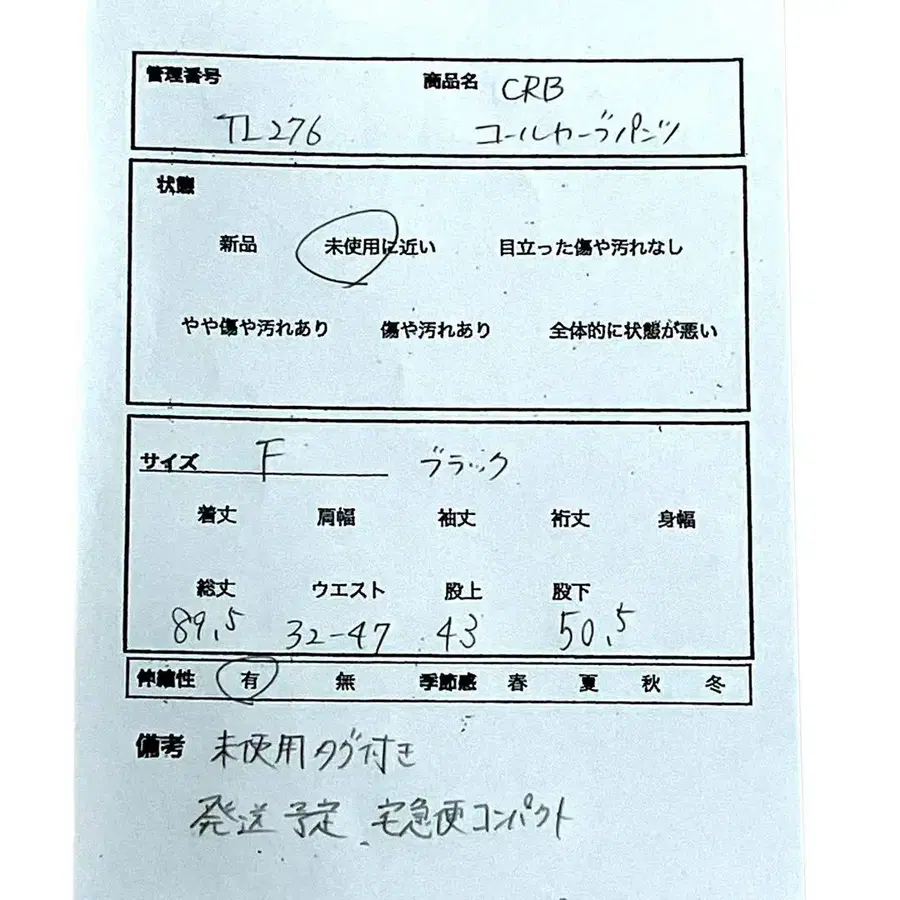 管理番号 商品名 CRB
TL276 コールカーブパンツ
状態
新品 未使用に近い 目立った傷や汚れなし
やや傷や汚れあり 傷や汚れあり 全体的に状態が悪い
サイズ F ブラック
着丈 肩幅 袖丈 裄丈 身幅
総丈 ウエスト 股上 股下
89.5 32-47 43 50.5
伸縮性 有 無 季節感 春 夏 秋 冬
備考 未使用タグ付き
発送予定 宅急便コンパクト